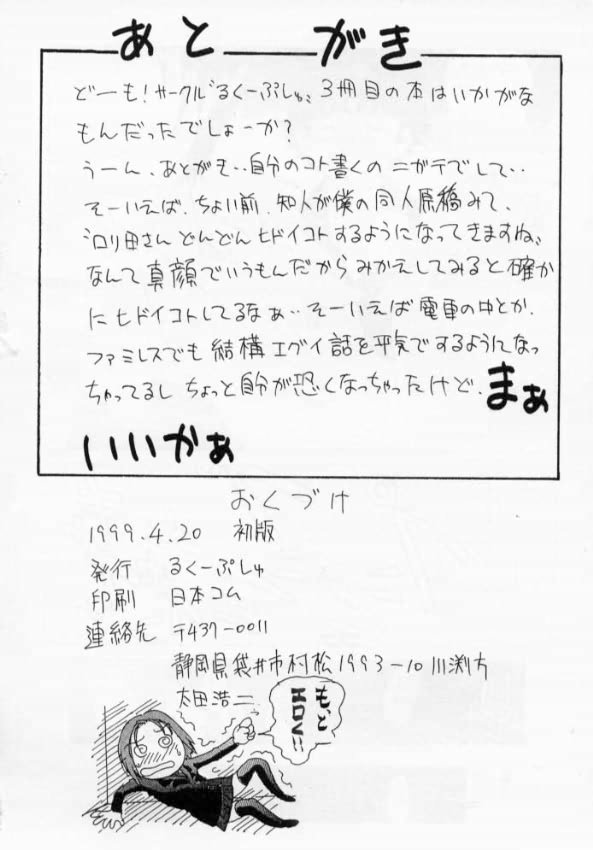 あとがき
どーも！サークル"るくーぷしゅ"、3冊目の本はいかがな
もんだったでしょーか？
うーん、あとがき‥自分のコト書くのニガテでして‥
そーいえば、ちょい前、知人が僕の同人原稿みて、
"ロリ田さんどんどんヒドイコトするようになってきますね"
なんて真顔でいうもんだからみかえしてみると確か
にヒドイコトしてるなぁ‥そーいえば電車の中とか、
ファミレスでも結構エグイ話を平気でするようになっ
ちゃってるし ちょっと自分が恐くなっちゃったけど、まぁ
いいかぁ
おくづけ
1999.4.20 初版
発行 るくーぷしゅ
印刷 日本コム
連絡先 〒437-0011
静岡県袋井市村松1993-10 川渕方
太田浩二
もっと